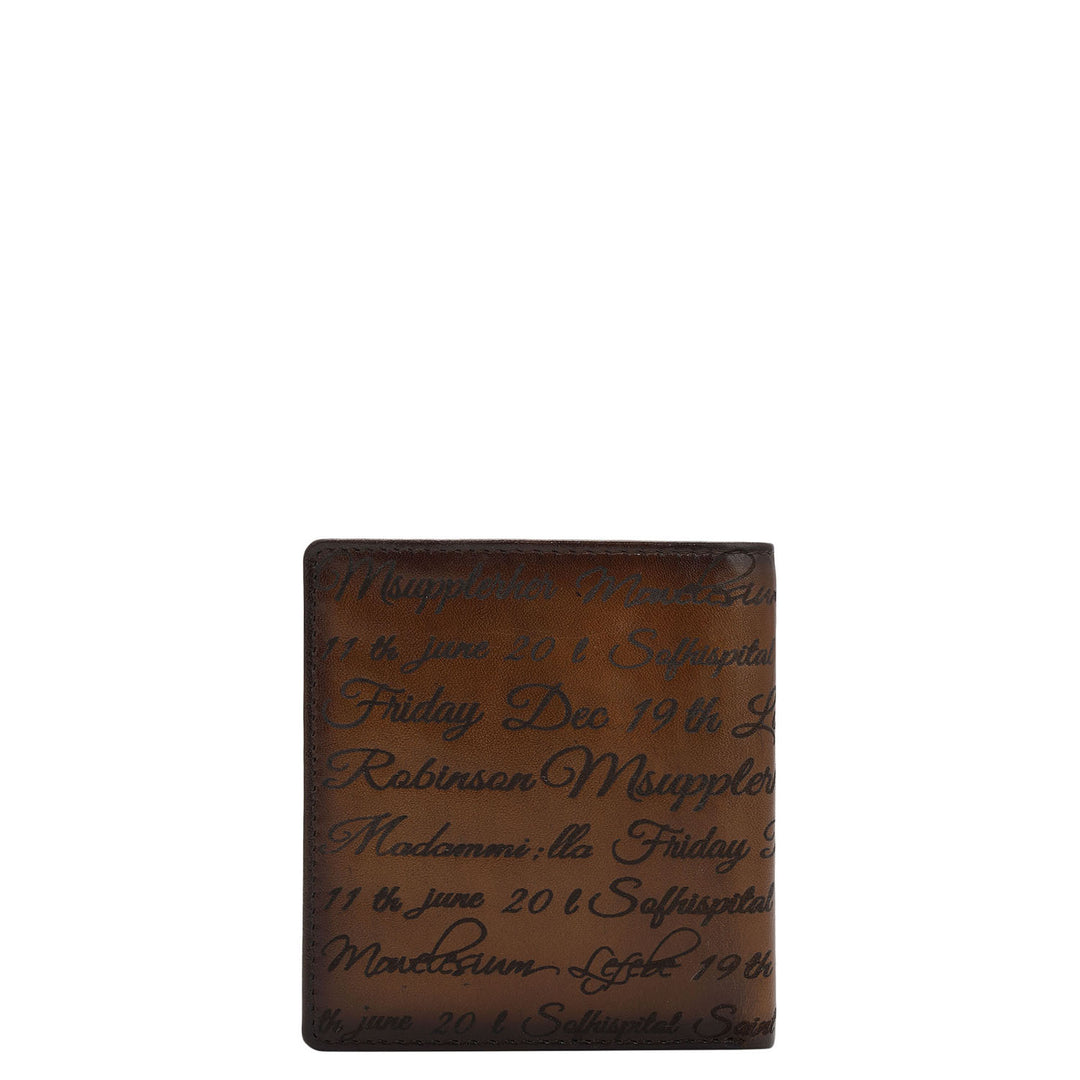 Msupplerher Mondesium
11 th june 20 l Safhispital
Friday Dec 19th
Robinson Msupplerh
Madammi;lla Friday
11 th june 20 l Safhispital
Mondesium Lefebe 19th
th june 20 l Safhispital Saint